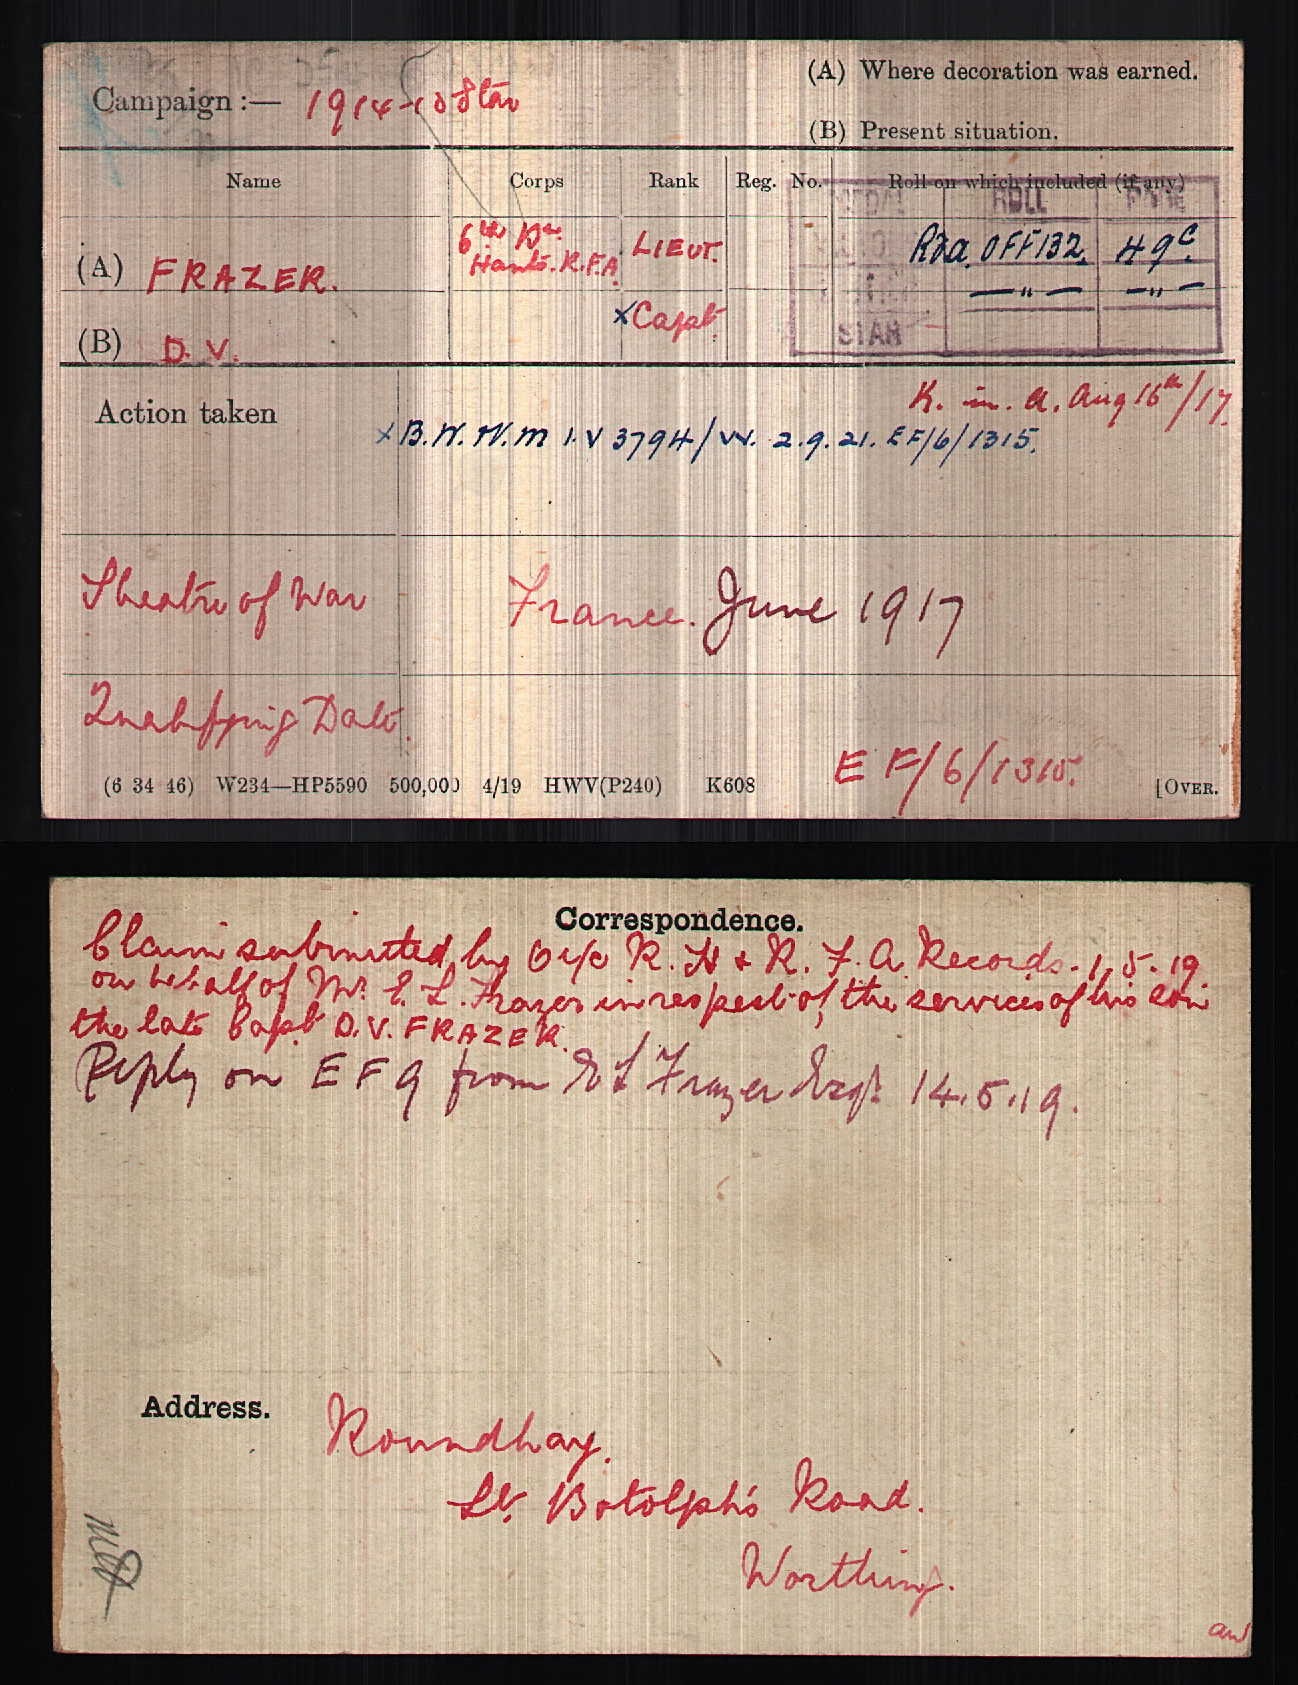 Campaign :— 1914-15 Star
(A) Where decoration was earned.
(B) Present situation.
Name Corps Rank Reg. No. Roll on which included (if any)
MEDAL ROLL PAGE
(A) FRAZER. 6th Dn. Hants. R.F.A. LIEUT. VICTORY RFA OFF132. 49C.
(B) D. V. xCapt. BRITISH —"— —"—
STAR
Action taken
K. in. a. Aug 16th/17.
xB.W.V.M I.V 3794/W. 2.9.21. EF/6/1315.
Theatre of War France. June 1917
Qualifying Date.
EF/6/1315.
(6 34 46) W234—HP5590 500,000 4/19 HWV(P240) K608 [OVER.
Correspondence.
Claim submitted by O i/c R. H & R. F. A. Records. 1.5.19
on behalf of Mr. E. L. Frazer in respect of the services of his son
the late Capt D.V. FRAZER.
Reply on EF9 from E L Frazer Esqr. 14.5.19.
Address. Roundhay.
St. Botolph's Road.
Worthing.
aw